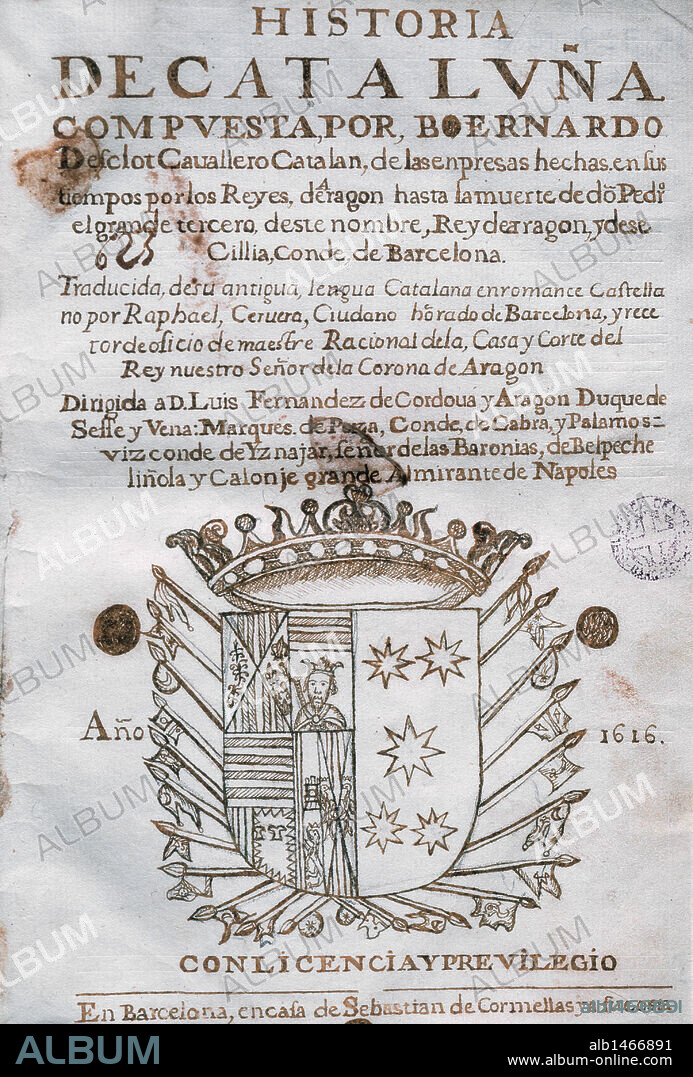 HISTORIA
DE CATALVÑA
COMPVESTA, POR, BOERNARDO
Desclot Cauallero Catalan, de las enpresas hechas. en sus
tiempos por los Reyes, de Aragon hasta la muerte de dõ Pedro
el grande tercero, deste nombre, Rey de arragon, y dese
623
Cillia, Conde, de Barcelona.
Traducida, de su antigua, lengua Catalana en romance Castella
no por Raphael, Ceruera, Ciudano hõrado de Barcelona, y rece
tor de oficio de maestre Racional dela, Casa y Corte del
Rey nuestro Señor de la Corona de Aragon
Dirigida a D. Luis Fernandez de Cordoua y Aragon Duque de
Sesse y Vena: Marques. de Poza, Conde, de Cabra, y Palamos=
viz conde de Yznajar, señor de las Baronias, de Belpeche
liñola y Calonje grande Almirante de Napoles
Año 1616.
CON LICENCIA Y PREVILEGIO
En Barcelona, en casa de Sebastian de Cormellas y
ALBUM
alb1466891
www.album-online.com